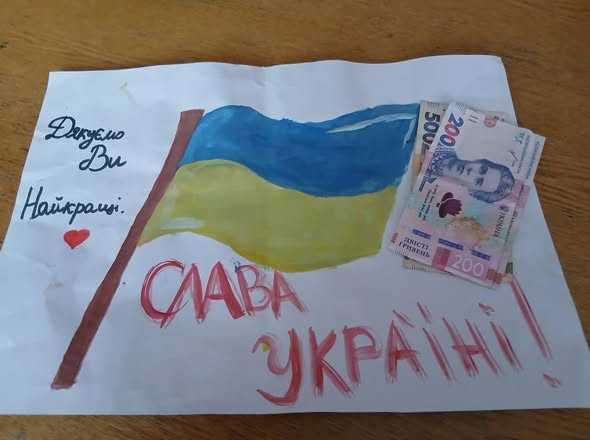 Дякуємо
Ви
Найкращі.
СЛАВА
УКРАЇНІ!
500
200
ДВІСТІ
ГРИВЕНЬ
200